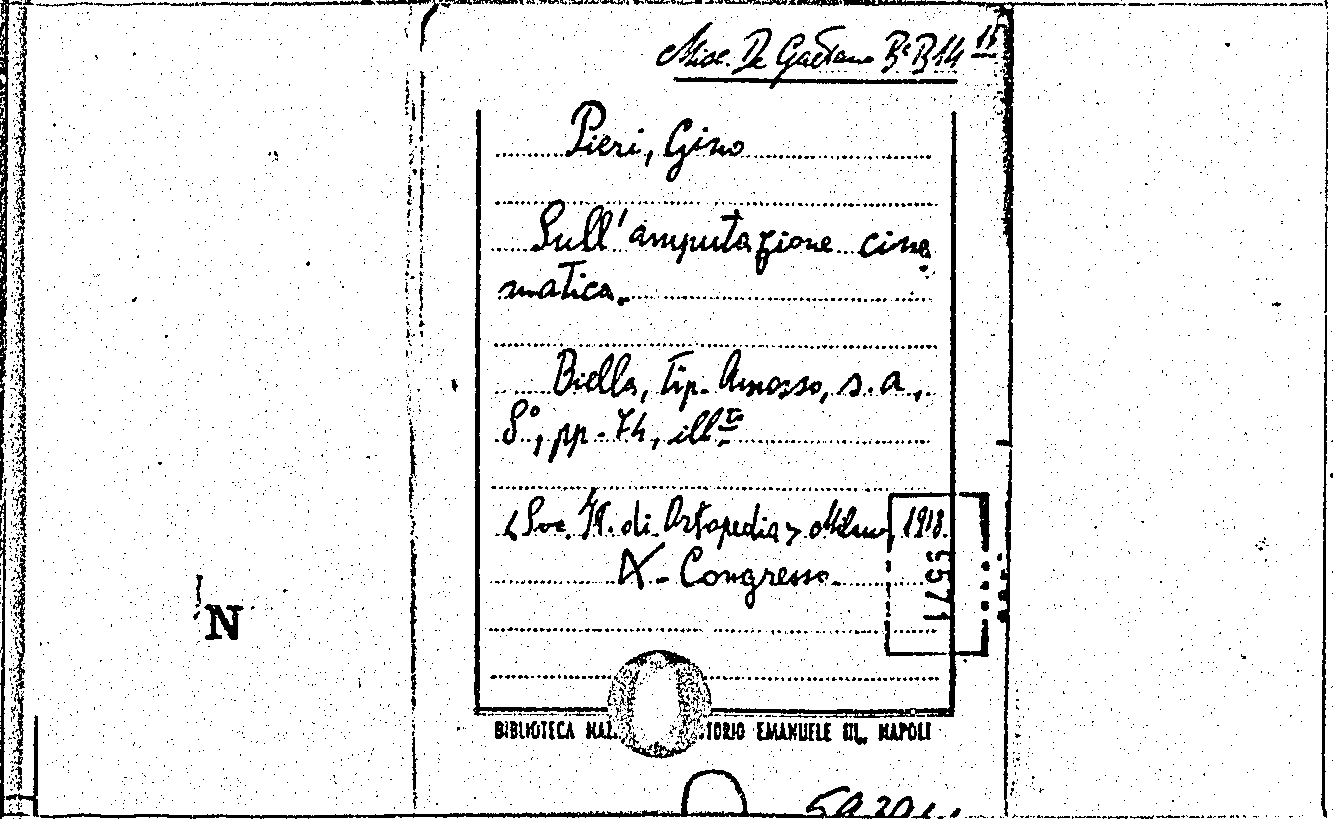 Misc. De Gaetano Bª B14 15
Pieri, Gino
Sull'amputazione cine
matica.
Biella, Tip. Amosso, s.a.,
8°, pp. 74, ill
Soc. It. di Ortopedia > Milano 1918.
X Congresso.
5571
N
BIBLIOTECA NAZ. TORIO EMANUELE III., NAPOLI